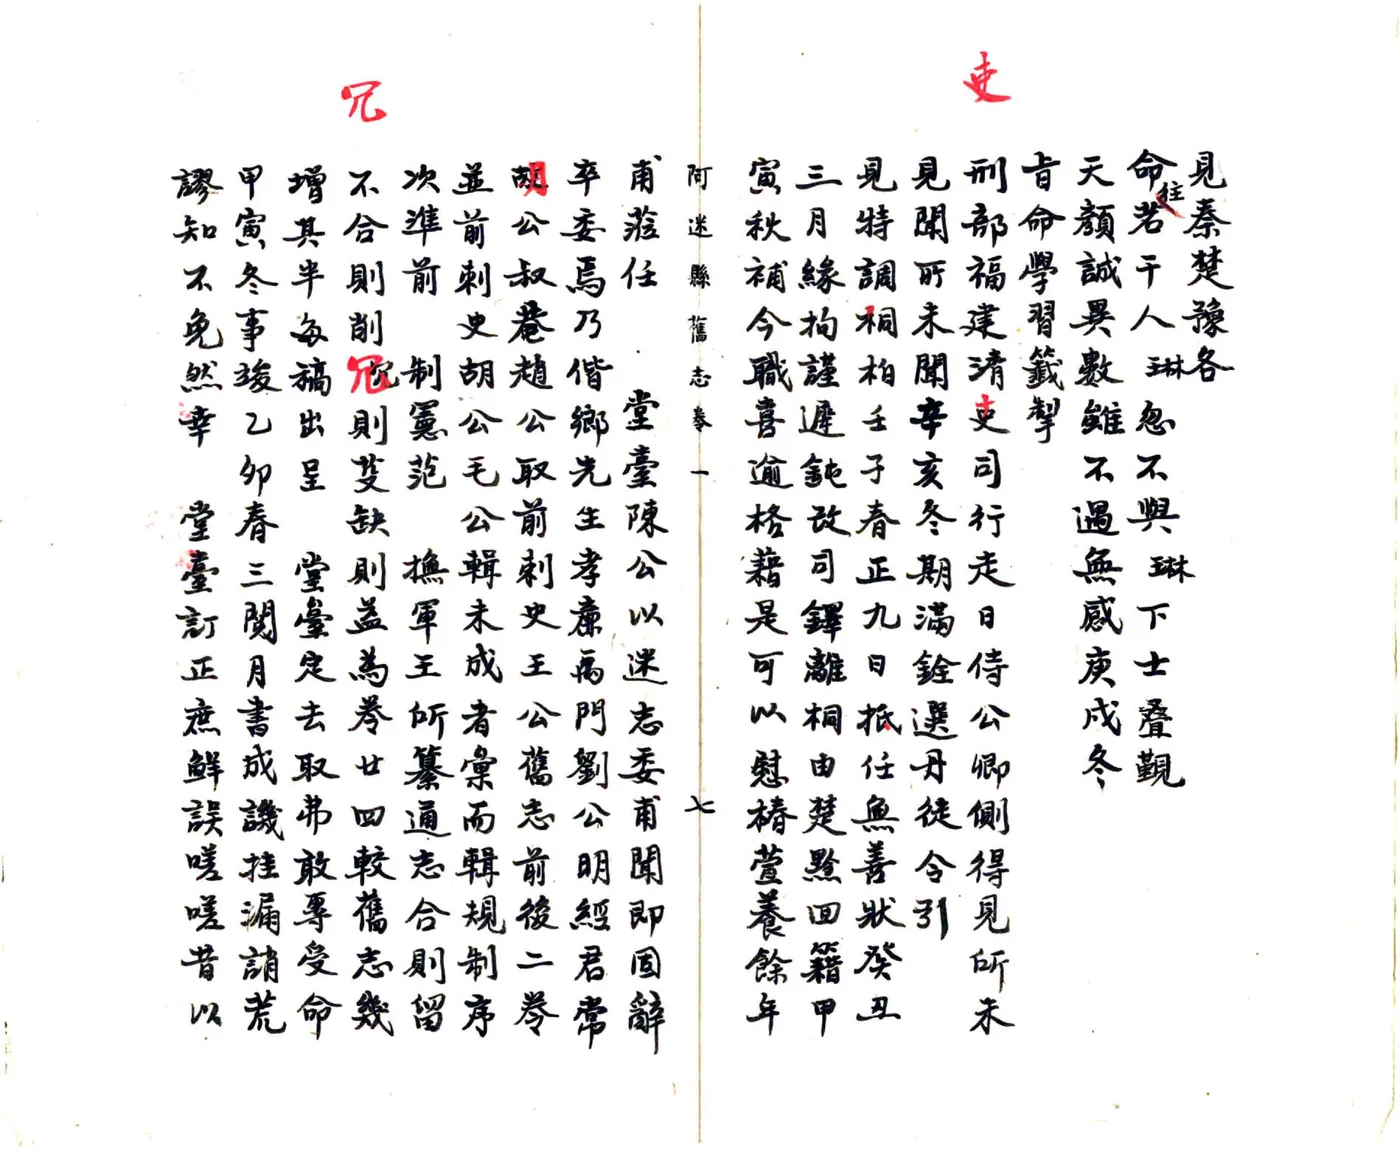 吏
見秦楚豫各
命往若干人琳忽不與琳下士叠觀
天顏誠異數雖不過無感庚戌冬
旨命學習籤掣
刑部福建清吏司行走日侍公卿側得見所未
見聞所未聞辛亥冬期滿銓選丹徒令引
見特調桐柏壬子春正九日抵任無善狀癸丑
三月緣拘謹遲鈍改司鐸離桐由楚黔回籍甲
寅秋補今職喜逾格藉是可以慰椿萱養餘年
阿迷縣舊志卷一 七
冗
甫蒞任 堂臺陳公以迷志委甫聞即固辭
卒委焉乃偕鄉先生孝廉禹門劉公明經君常
胡公叔菴趙公取前刺史王公舊志前後二卷
並前刺史胡公毛公輯未成者彙而輯規制序
次準前 制憲范 撫軍王所纂通志合則留
不合則削冗則芟缺則益為卷廿四較舊志幾
增其半每稿出呈 堂臺定去取弗敢專受命
甲寅冬事竣乙卯春三閱月書成譏挂漏誚荒
謬知不免然幸 堂臺訂正庶鮮誤嗟嗟昔以